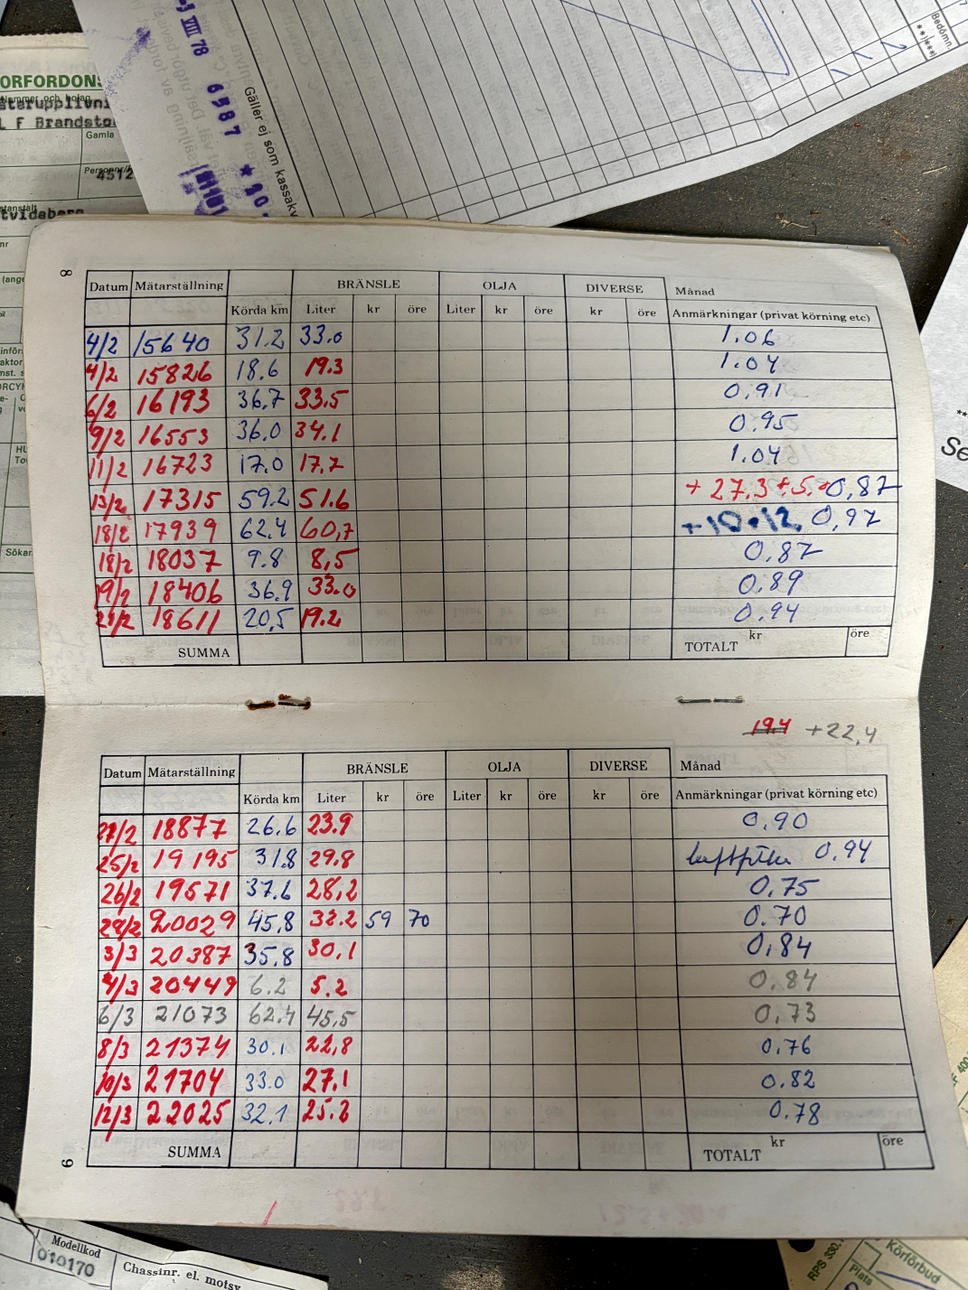 -3 VIII 78 6587 *
Gäller ej som kassakv
Bedömn.
ORFORDON
L F Brandsto
Gamla
4512
tvidaberg
8
Datum Mätarställning BRÄNSLE OLJA DIVERSE Månad
Körda km Liter kr öre Liter kr öre kr öre Anmärkningar (privat körning etc)
4/2 15640 31.2 33.0 1.06
4/2 15826 18.6 19.3 1.04
6/2 16193 36.7 33.5 0.91
9/2 16553 36.0 34.1 0.95
11/2 16723 17.0 17.7 1.04
13/2 17315 59.2 51.6 + 27.3 + 5.0 0,87
18/2 17939 62.4 60,7 +10+12 0,97
18/2 18037 9.8 8,5 0,87
19/2 18406 36.9 33.0 0,89
21/2 18611 20,5 19.2 0.94
SUMMA TOTALT kr öre
19.4 +22,4
Datum Mätarställning BRÄNSLE OLJA DIVERSE Månad
Körda km Liter kr öre Liter kr öre kr öre Anmärkningar (privat körning etc)
22/2 18877 26.6 23.9 0,90
25/2 19195 31.8 29.8 luftfilter 0.94
26/2 19571 37.6 28,2 0.75
28/2 20029 45,8 32.2 59 70 0.70
3/3 20387 35.8 30,1 0,84
4/3 20449 6.2 5.2 0,84
6/3 21073 62.4 45,5 0,73
8/3 21374 30.1 22,8 0,76
10/3 21704 33.0 27.1 0.82
12/3 22025 32,1 25.2 0.78
SUMMA TOTALT kr öre
9
Modellkod
010170
Chassinr. el. motsv
Körförbud
Plats
RPS 330.